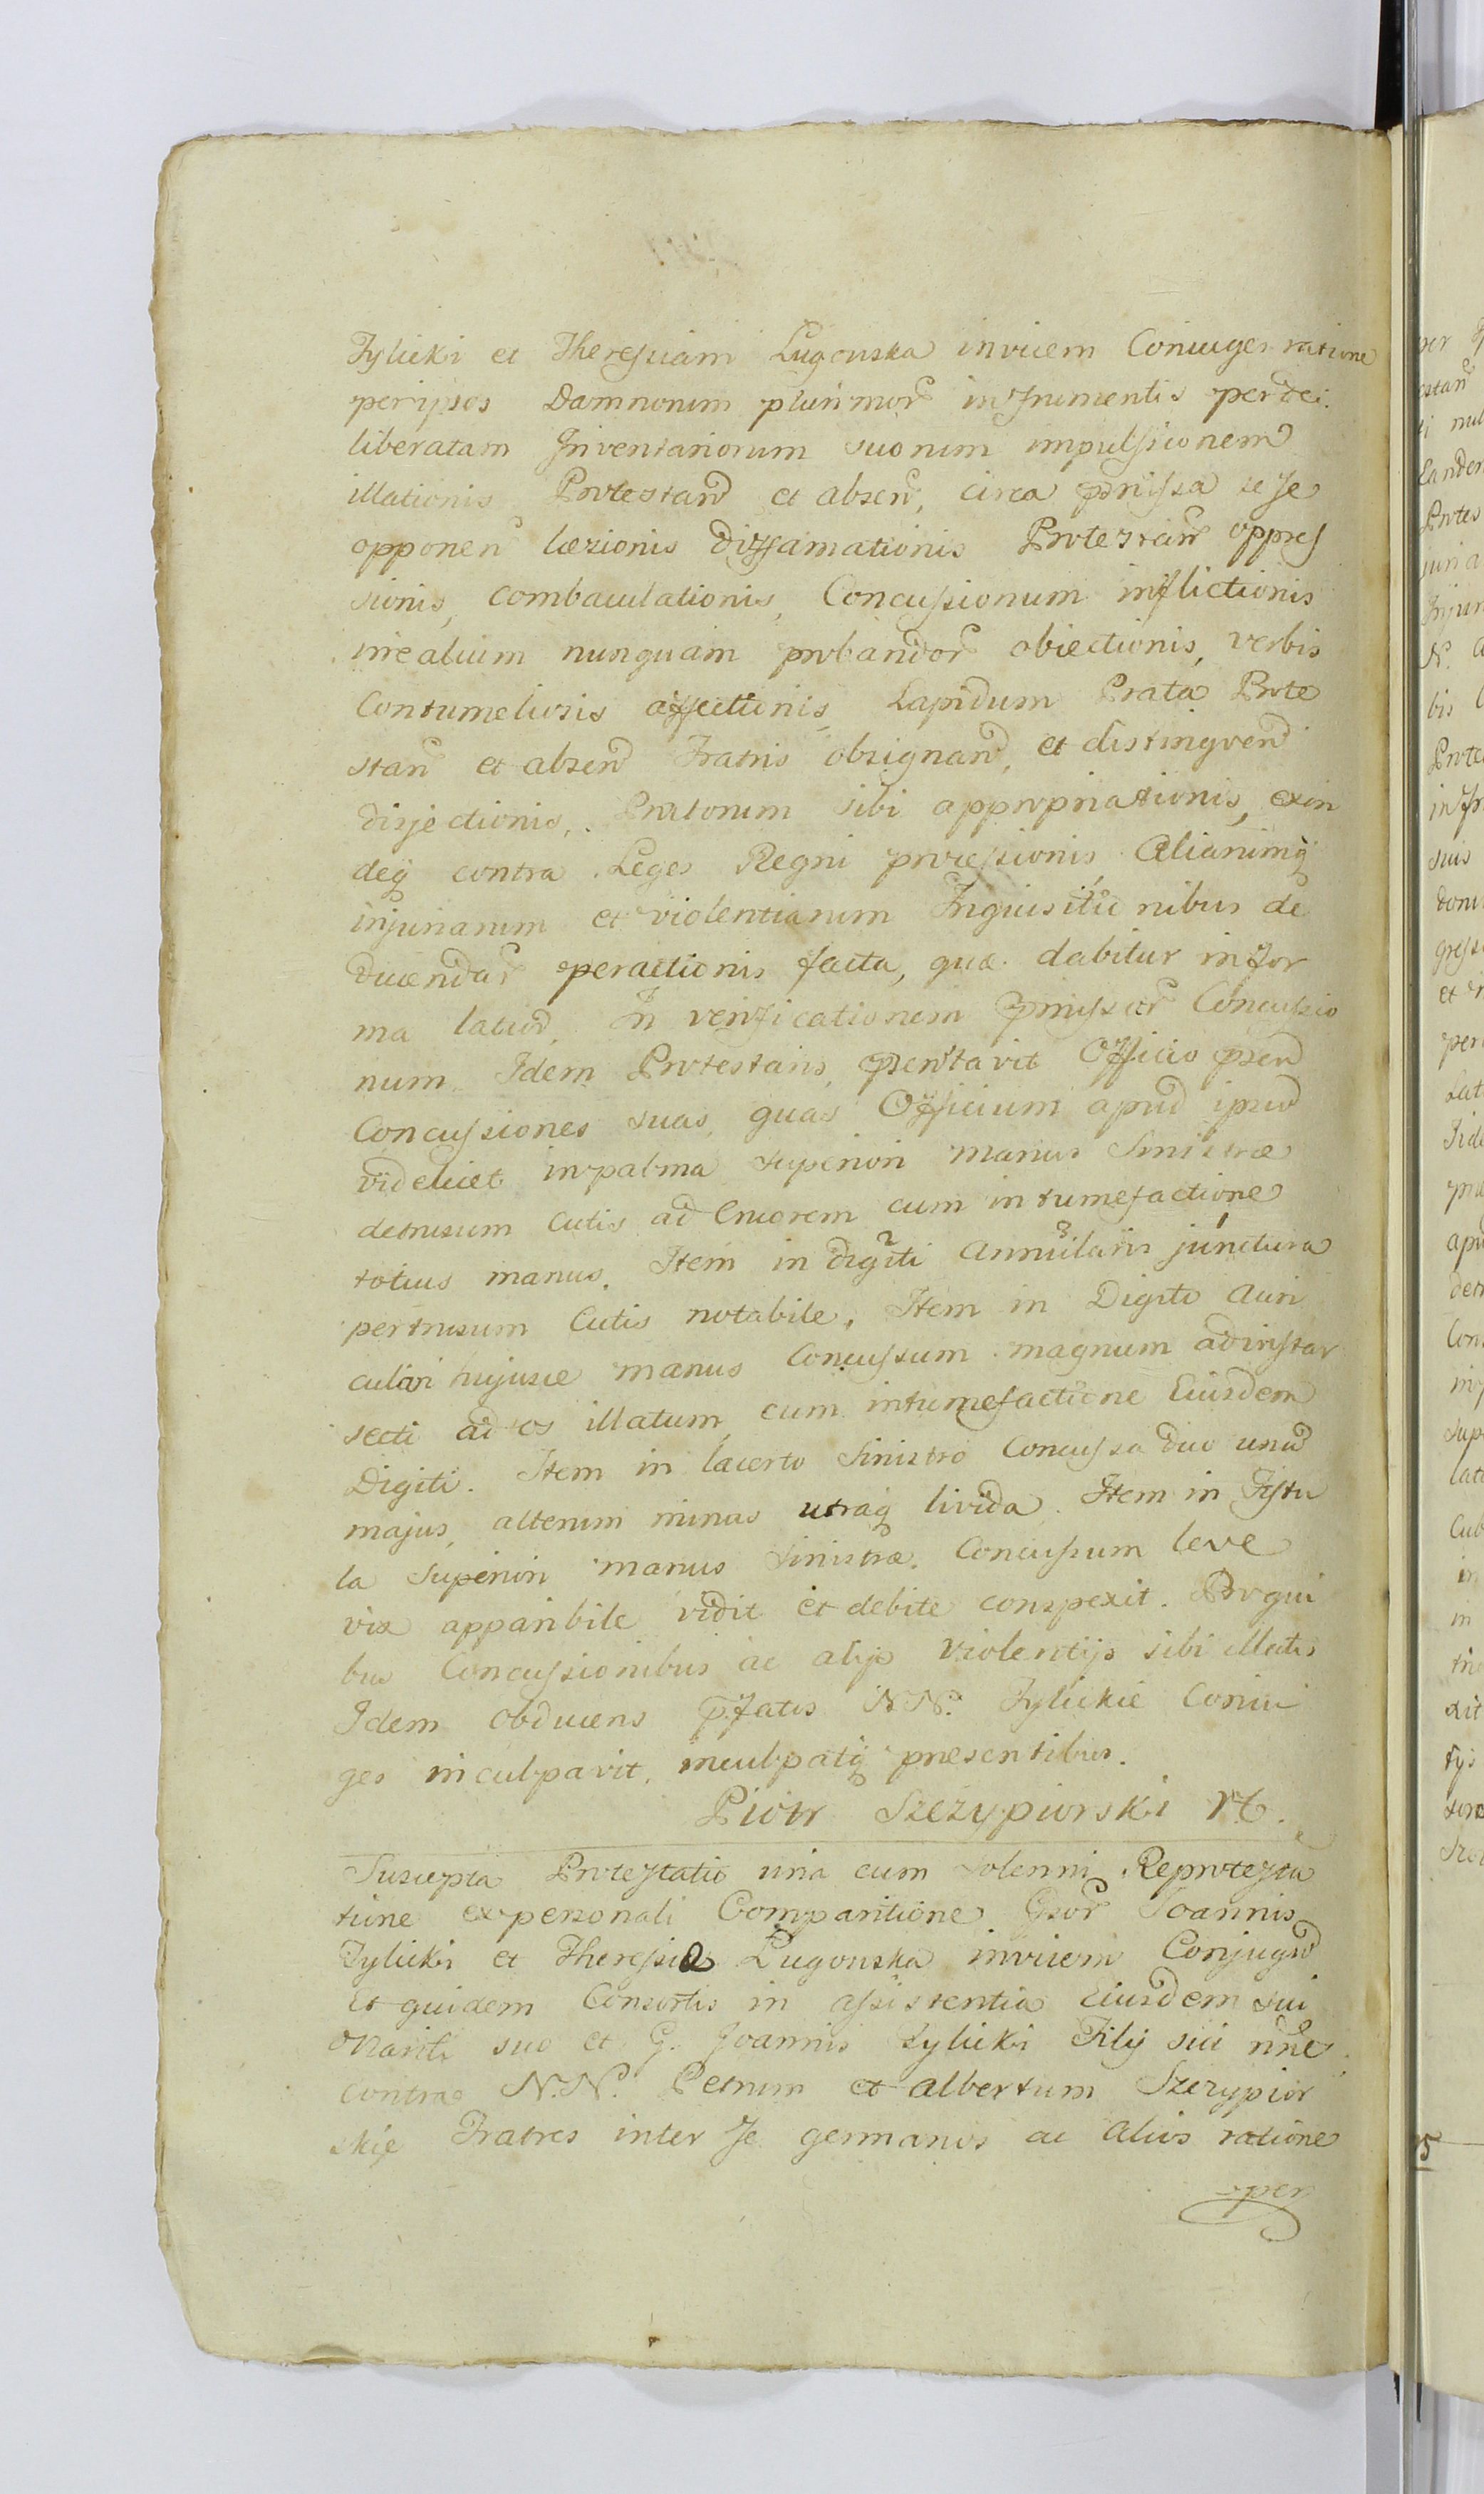 Tylicki et Theressiam Lugowska invicem Coniuges ratione
per ipsos Damnorum plurimor in frumentis per dei
liberatam Inventariorum suorum impulssionem
illationis Protestand et absen, circa pmissa se se
opponen læsionis diffamationis Protestan oppres
sionis, combaculationis, Concussionum inflictionis
irrealium nunquam probandor obiectionis, verbis
Contumeliosis affectionis Lapidum Prata Prote
stan et absen Fratris obsignan, et distingven
disjectionis, Pratorum sibi appropriationis, exin
deq contra Leges Regni processionis Aliarumq
injuriarum et violentiarum Inquisitionibus de
ducendar peractionis facta, quæ dabitur in for
ma latior. In verificationem pmissar Concussio
num Idem Protestans psentavit Officio psen
Concussiones suas, quas Officium apud ipsum
videlicet in palma superiori manus Sinistræ
detrusum Cutis ad Cruorem cum intumefactione
totius manus. Item in digiti Annularis junctura
pertrusum Cutis notabile. Item in Digito Auri
culari hujusce manus Concussum magnum ad instar
secti ad os illatum cum intumefactione Eiusdem
Digiti. Item in lacerto Sinistro Concussa duo unum
majus, alterum minus utraq livida. Item in Fistu
la Superiori manus Sinistræ. Concussum leve
vix apparibile vidit et debite conspexit. Pro qui
bus Concussionibus ac alijs violentijs sibi illatis
Idem obducens pfatos NN. Tylickie Coniu
ges inculpavit, inculpatq presentibus.
Piotr Szczypiorski
Suscepta Protestatio una cum Solenni Reprotesta
tione ex personali Comparitione Gsor Joannis
Tylicki et Theressia Lugowska invicem Conjugum
Et quidem Consortis in assistentia Eiusdem sui
Mariti suo et G. Joannis Tylicki Filij sui nne
contra N.N. Petrum et Albertum Szczypior
skie Fratres inter se germanos ac Alios ratione
per